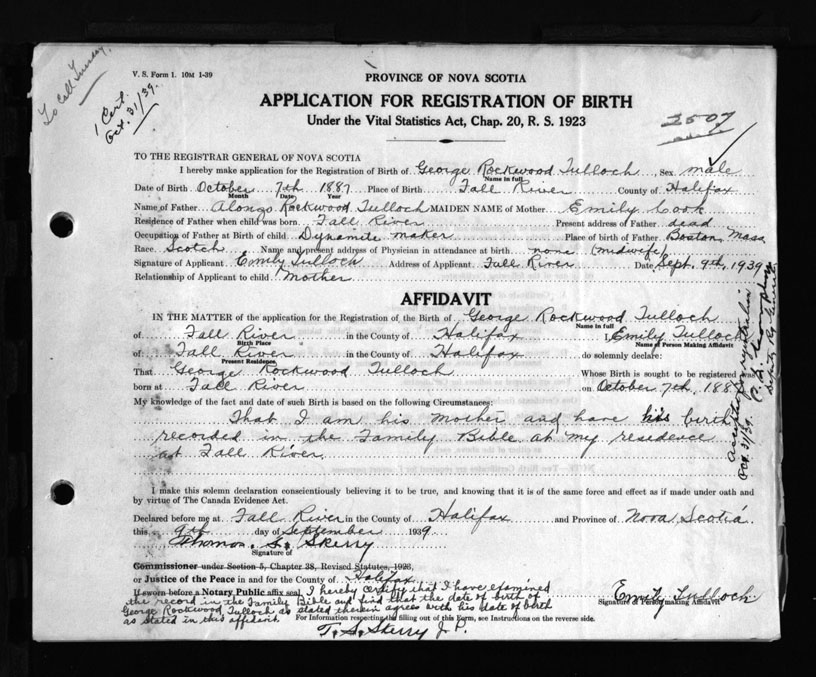 To Call Tuesday.
1 Cert.
Oct. 31/39.
V. S. Form 1. 10M 1-39
PROVINCE OF NOVA SCOTIA
APPLICATION FOR REGISTRATION OF BIRTH
Under the Vital Statistics Act, Chap. 20, R. S. 1923
2507
TO THE REGISTRAR GENERAL OF NOVA SCOTIA
I hereby make application for the Registration of Birth of George Rockwood Tulloch, Sex male
Name in full
Date of Birth October 7th 1887 Place of Birth Fall River County of Halifax
Month Date Year
Name of Father Alonzo Rockwood Tulloch MAIDEN NAME of Mother Emily Cook
Residence of Father when child was born Fall River Present address of Father dead
Occupation of Father at Birth of child Dynamite maker Place of birth of Father Boston, Mass.
Race Scotch Name and present address of Physician in attendance at birth none (midwife)
Signature of Applicant Emily Tulloch Address of Applicant Fall River Date Sept. 9th, 1939
Relationship of Applicant to child Mother
AFFIDAVIT
IN THE MATTER of the application for the Registration of the Birth of George Rockwood Tulloch
Name in full
of Fall River in the County of Halifax I, Emily Tulloch
Birth Place Name of Person Making Affidavit
of Fall River in the County of Halifax do solemnly declare:
Present Residence
That George Rockwood Tulloch Whose Birth is sought to be registered was
born at Fall River on October 7th, 188
My knowledge of the fact and date of such Birth is based on the following Circumstances:
That I am his Mother and have his birth
recorded in the Family Bible at my residence
at Fall River.
I make this solemn declaration conscientiously believing it to be true, and knowing that it is of the same force and effect as if made under oath and
by virtue of The Canada Evidence Act.
Declared before me at Fall River in the County of Halifax and Province of Nova Scotia
this 9th day of September 1939
Thomas S. Skerry
Signature of
Commissioner under Section 5, Chapter 38, Revised Statutes, 1923,
or Justice of the Peace in and for the County of Halifax
If sworn before a Notary Public affix seal I hereby certify that I have examined
the record in the Family Bible and find that the date of birth of
George Rockwood Tulloch as stated therein agrees with his date of birth
as stated in this affidavit.
Emily Tulloch
Signature of Person making Affidavit
For Information respecting the filling out of this Form, see Instructions on the reverse side.
T. S. Skerry J. P.
Oct. 31/39.